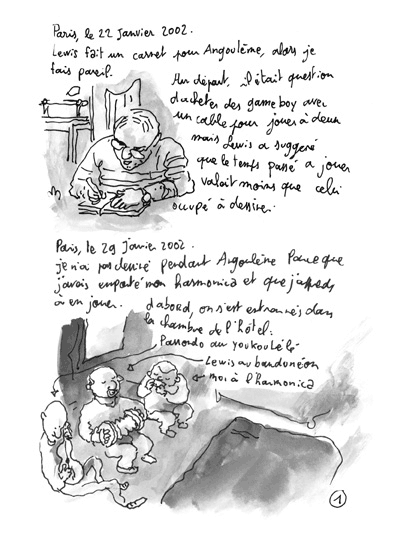 Paris, le 22 janvier 2002.
Lewis fait un carnet pour Angoulême, alors je
fais pareil.
Au départ, il était question
d'acheter des gameboy avec
un cable pour jouer à deux
mais Lewis a suggéré
que le temps passé a jouer
valait moins que celui
occupé à dessiner.
Paris, le 29 janvier 2002.
je n'ai pas dessiné pendant Angoulême Parce que
j'avais emporté mon harmonica et que j'apprends
à en jouer.
d'abord, on s'est entrainés dans
la chambre de l'hôtel.
au youkoulélé
Lewis au bandonéon
moi à l'harmonica
1